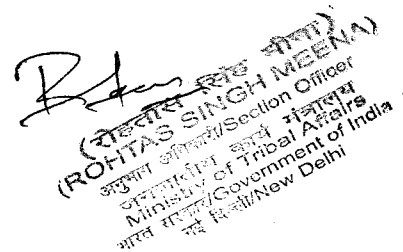 (रोहतास सिंह मीना)
(ROHTAS SINGH MEENA)
अनुभाग अधिकारी/Section Officer
जनजातीय कार्य मंत्रालय
Ministry of Tribal Affairs
भारत सरकार/Government of India
नई दिल्ली/New Delhi